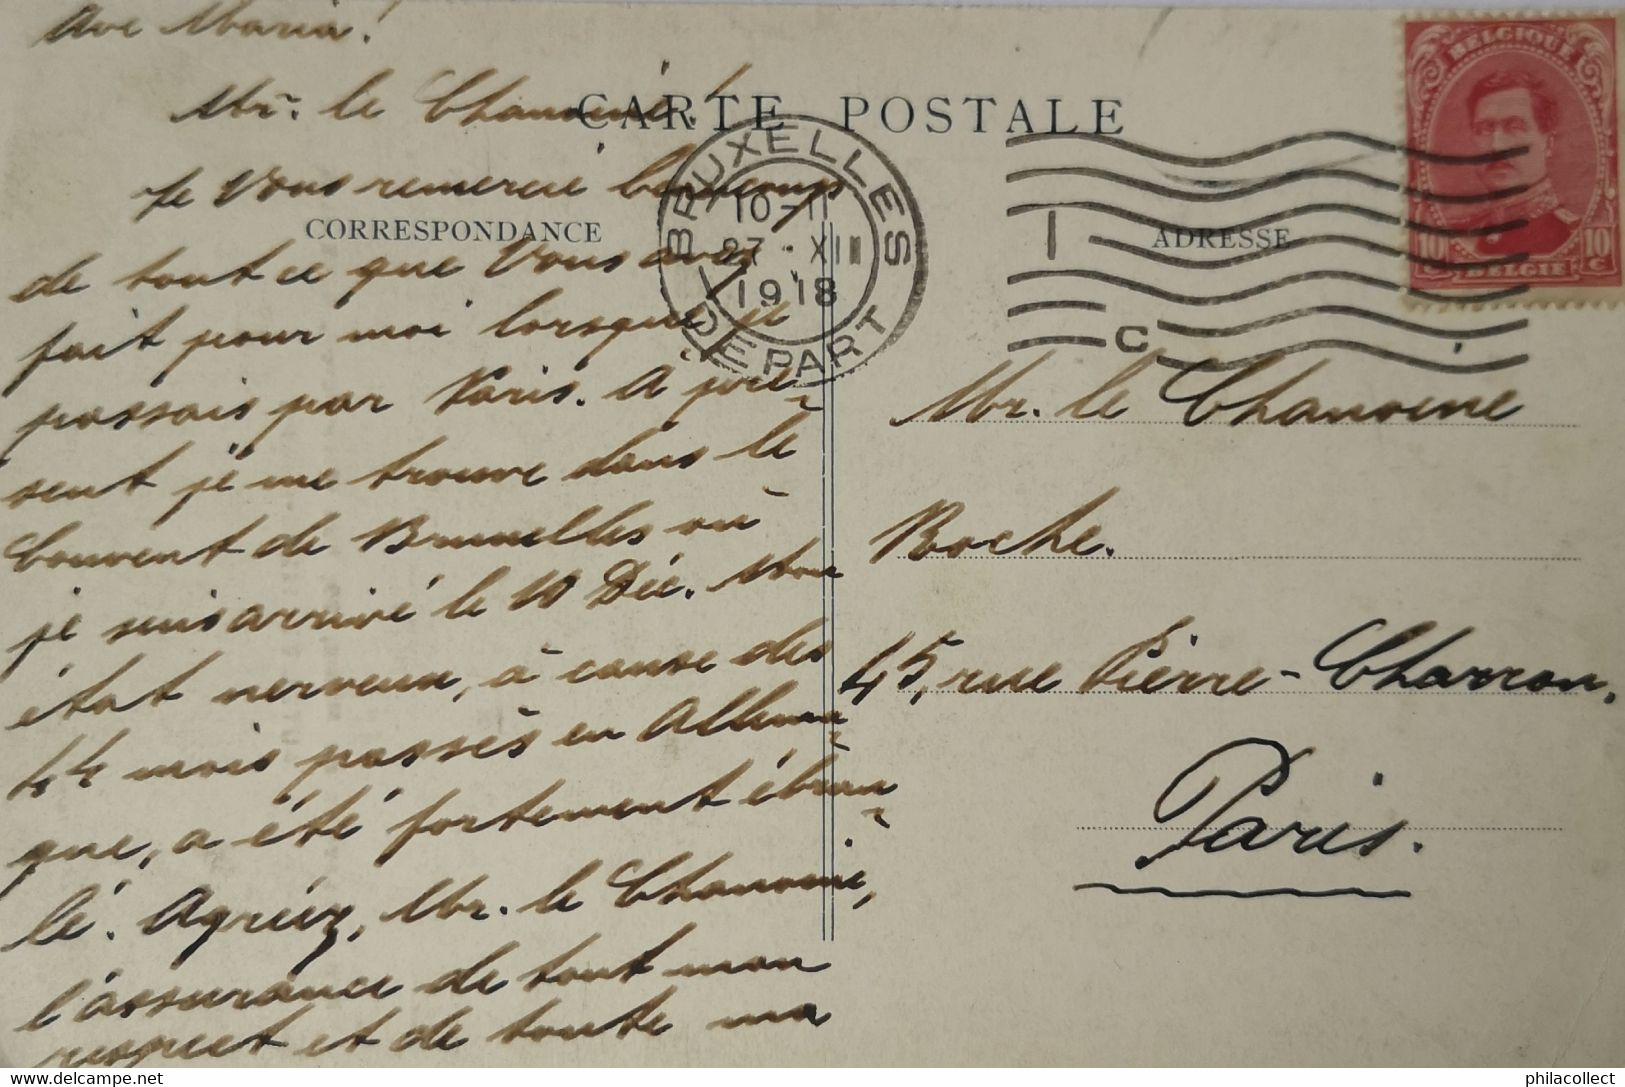 Ave Maria!
Mr. le Chanoine!
Je Vous remercie beaucoup
de tout ce que Vous avez
fait pour moi lorsque je
passais par Paris. A pré-
sent je me trouve dans le
Couvent de Bruxelles où
je suis arrivé le 10 Déc. Mon
état nerveux, à cause des
44 mois passés en Allema-
gne, a été fortement ébran-
lé. Agréez, Mr. le Chanoine,
l'assurance de tout mon
respect et de toute ma
CARTE POSTALE
CORRESPONDANCE
ADRESSE
BRUXELLES
10-11
27 XII
1918
DEPART
1
C
BELGIQUE
10 c 10 c
BELGIË
Mr. le Chanoine
Roche.
45, rue Pierre-Charron,
Paris.
philacollect